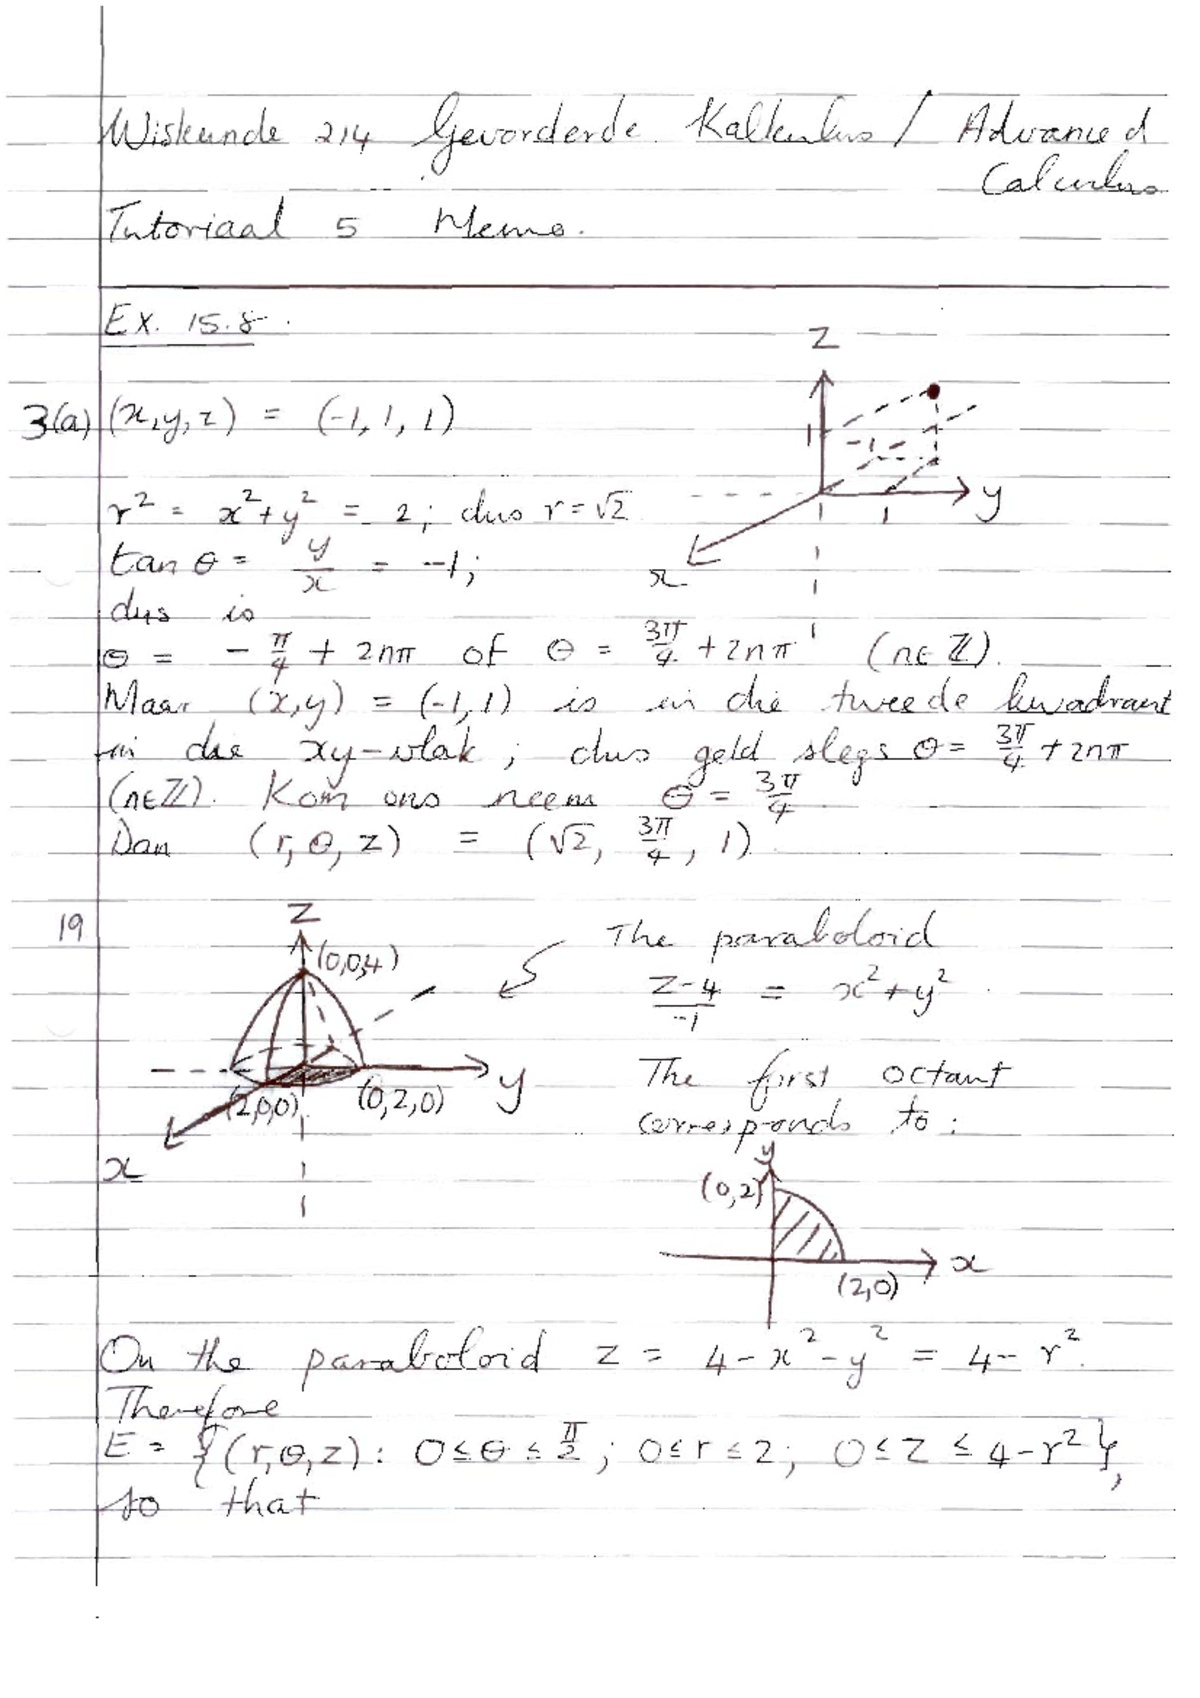 Wiskunde 214 Gevorderde Kalkulus / Advanced
Calculus
Tutoriaal 5 Memo.
Ex. 15.8.
z
3(a) (x,y,z) = (-1, 1, 1)
1
-1
1
y
x
r² = x²+y² = 2; dus r=√2
tan θ = y/x = -1;
dus is
θ = -π/4 + 2nπ of θ = 3π/4 + 2nπ (n∈ℤ).
Maar (x,y) = (-1,1) is in die tweede kwadrant
in die xy-vlak; dus geld slegs θ= 3π/4 + 2nπ
(n∈ℤ). Kom ons neem θ = 3π/4
Dan (r, θ, z) = (√2, 3π/4, 1)
19
z
(0,0,4)
y
(2,0,0)
(0,2,0)
x
The paraboloid
z-4/-1 = x²+y²
The first octant
corresponds to:
y
(0,2)
x
(2,0)
On the paraboloid z = 4-x²-y² = 4-r².
Therefore
E = {(r,θ,z): 0≤θ≤π/2; 0≤r≤2; 0≤z≤4-r²},
so that